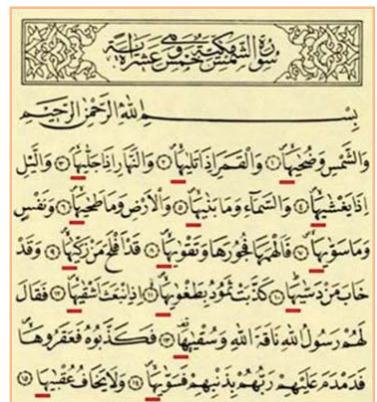 سورة الشمس مكية وهي خمس عشرة اية
بِسْمِ اللهِ الرَّحْمٰنِ الرَّحِيمِ
وَالشَّمْسِ وَضُحٰيهَاۙ ﴿١﴾ وَالْقَمَرِ اِذَا تَلٰيهَاۙ ﴿٢﴾ وَالنَّهَارِ اِذَا جَلّٰيهَاۙ ﴿٣﴾ وَالَّيْلِ
اِذَا يَغْشٰيهَاۙ ﴿٤﴾ وَالسَّمَاءِ وَمَا بَنٰيهَاۙ ﴿٥﴾ وَالْاَرْضِ وَمَا طَحٰيهَاۙ ﴿٦﴾ وَنَفْسٍ
وَمَا سَوّٰيهَاۙ ﴿٧﴾ فَاَلْهَمَهَا فُجُورَهَا وَتَقْوٰيهَاۙ ﴿٨﴾ قَدْ اَفْلَحَ مَنْ زَكّٰيهَاۙ ﴿٩﴾ وَقَدْ
خَابَ مَنْ دَسّٰيهَاۜ ﴿١٠﴾ كَذَّبَتْ ثَمُودُ بِطَغْوٰيهَاۙ ﴿١١﴾ اِذِ انْبَعَثَ اَشْقٰيهَاۙ ﴿١٢﴾ فَقَالَ
لَهُمْ رَسُولُ اللهِ نَاقَةَ اللهِ وَسُقْيٰيهَاۜ ﴿١٣﴾ فَكَذَّبُوهُ فَعَقَرُوهَاۙ
فَدَمْدَمَ عَلَيْهِمْ رَبُّهُمْ بِذَنْبِهِمْ فَسَوّٰيهَاۙ ﴿١٤﴾ وَلَا يَخَافُ عُقْبٰيهَا ﴿١٥﴾